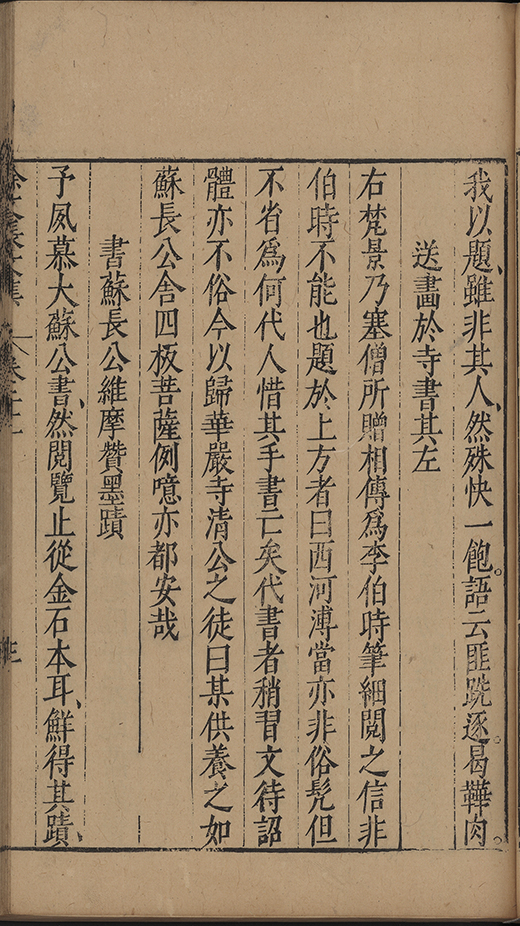 我以題、雖非其人、然殊快一飽。語云匪跣逐。曷鞾肉。
送畫於寺書其左
右梵景乃塞僧所贈相傳爲李伯時筆細閱之信非
伯時不能也題於上方者曰西河溥當亦非俗髡但
不省爲何代人惜其手書亡矣代書者稍習文待詔
體亦不俗今以歸華嚴寺清公之徒曰某供養之如
蘇長公舍四板菩薩例噫亦都安哉
書蘇長公維摩贊墨蹟
予夙慕大蘇公書、然閱覽止從金石本耳、鮮得其蹟、